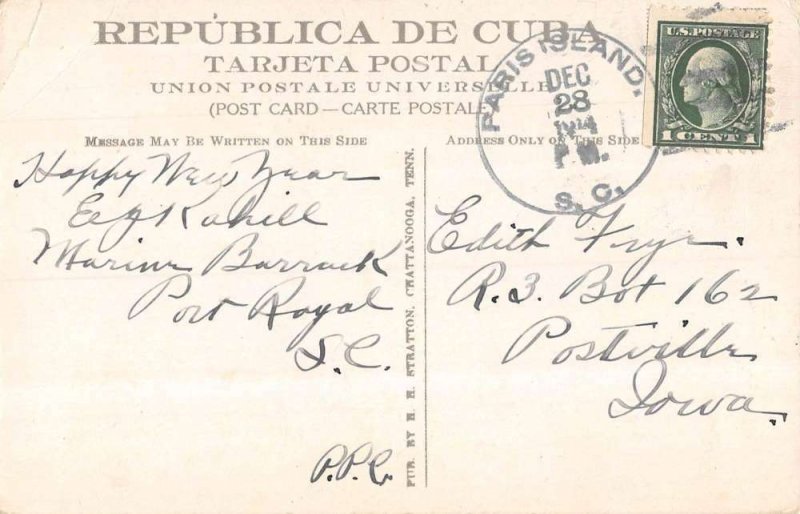 REPÚBLICA DE CUBA
TARJETA POSTAL
UNION POSTALE UNIVERSELLE
(POST CARD — CARTE POSTALE)
U.S. POSTAGE
1 CENT 1
PARIS ISLAND,
DEC
28
1914
P.M.
S.C.
MESSAGE MAY BE WRITTEN ON THIS SIDE
Happy New Year
Ed J Kahill
Marine Barrack
Port Royal
S.C.
P.P.C.
PUB. BY H. H. STRATTON, CHATTANOOGA, TENN.
ADDRESS ONLY ON THIS SIDE
Edith Frye.
R.3. Box 162
Postville
Iowa.